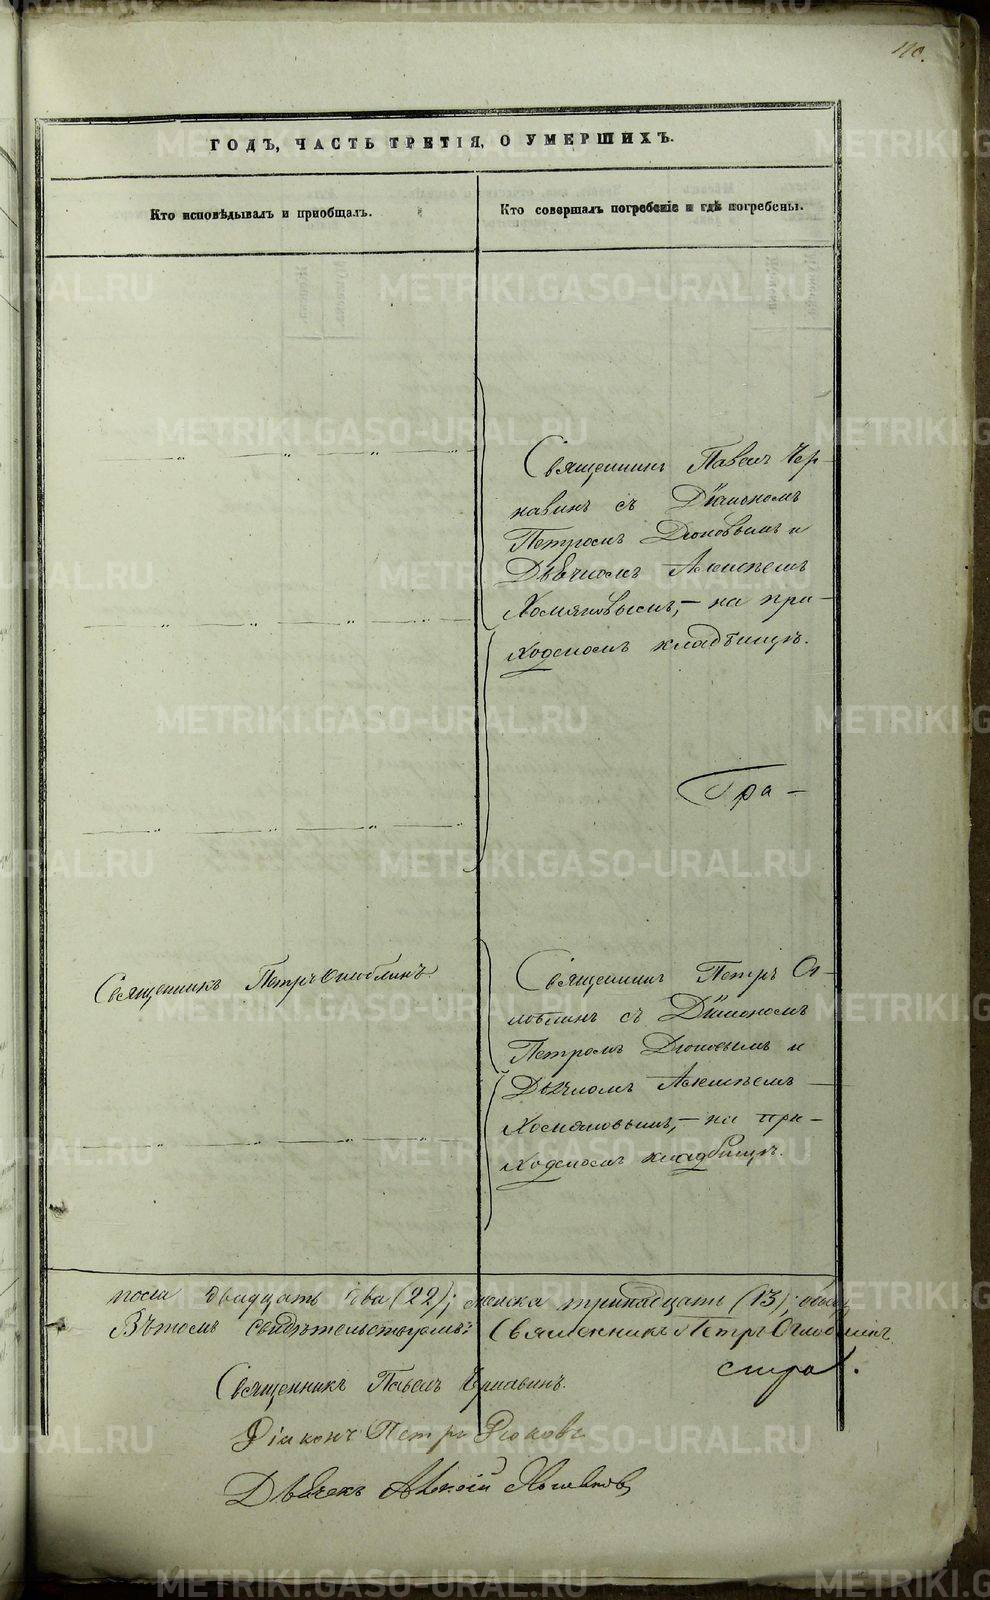 110.
ГОДЪ, ЧАСТЬ ТРЕТІЯ, О УМЕРШИХЪ.
Кто исповѣдывалъ и пріобщалъ.
Кто совершалъ погребеніе и гдѣ погребены.
Священникъ Павелъ Чер-
навинъ съ Діакономъ
Петромъ Дюковымъ и
Дьячкомъ Алексѣемъ
Хомяковымъ, — на при-
ходскомъ кладбищѣ.
Гра —
Священникъ Петръ Оглоблинъ
Священникъ Петръ Ог-
лоблинъ съ Діакономъ
Петромъ Дюковымъ и
Дьячкомъ Алексѣемъ
Хомяковымъ, — на при-
ходскомъ кладбищѣ.
пола двадцать два (22); женска тринадцать (13);
Въ томъ свидѣтельствуемъ: Священникъ Петръ Оглоблинъ
Священникъ Павелъ Чернавинъ.
Діаконъ Петръ Дюковъ
Дьячекъ Алексій Хомяковъ
METRIKI.GASO-URAL.RU